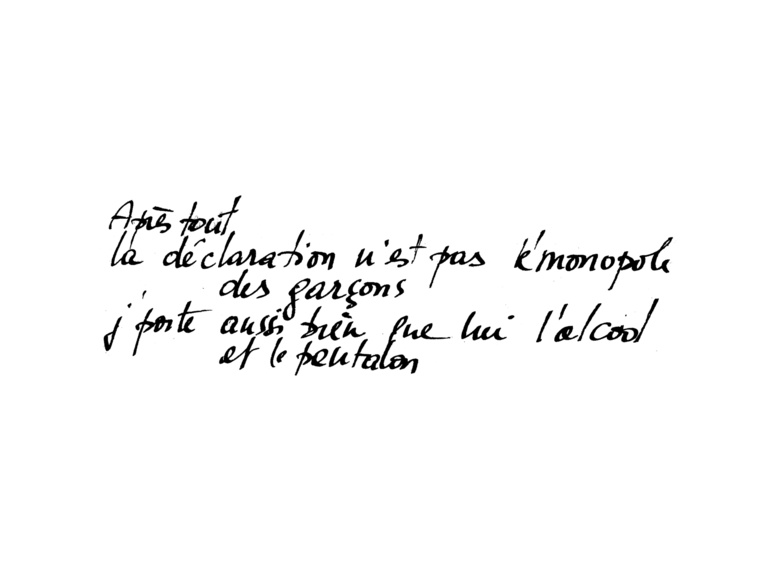 Après tout
la déclaration n'est pas le monopole
des garçons
j'porte aussi bien que lui l'alcool
et le pantalon